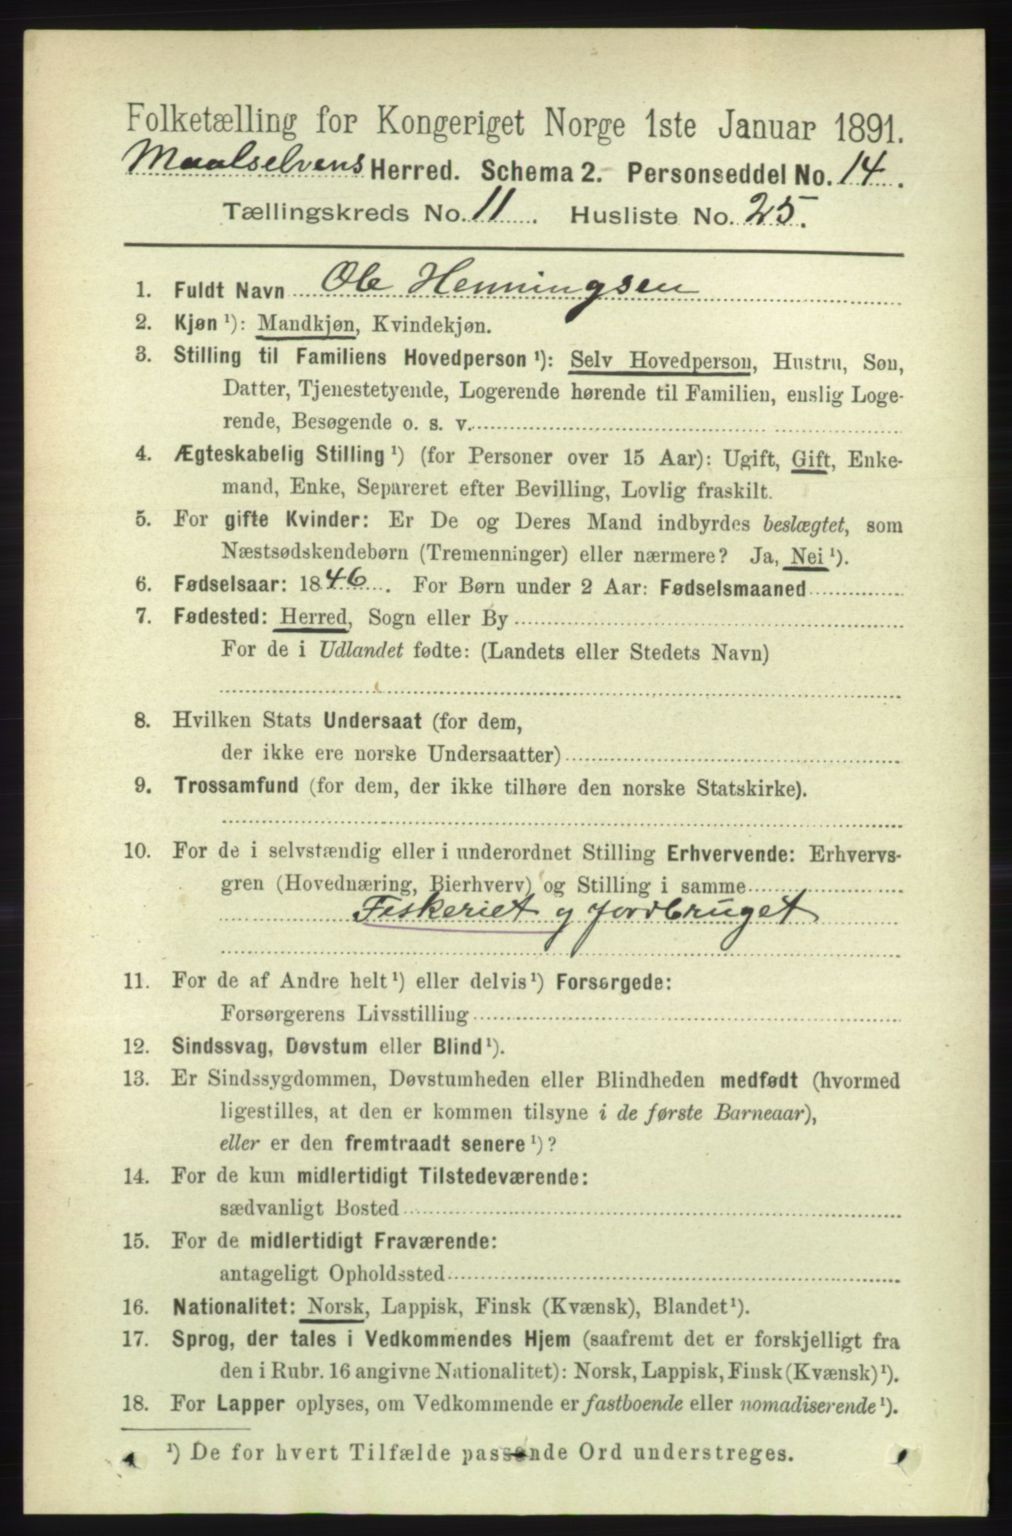 Folketælling for Kongeriget Norge 1ste Januar 1891.
Maalselvens Herred. Schema 2. Personseddel No. 14.
Tællingskreds No. 11. Husliste No. 25.
1. Fuldt Navn Ole Henningsen
2. Kjøn ¹): Mandkjøn, Kvindekjøn.
3. Stilling til Familiens Hovedperson ¹): Selv Hovedperson, Hustru, Søn,
Datter, Tjenestetyende, Logerende hørende til Familien, enslig Loge-
rende, Besøgende o. s. v.
4. Ægteskabelig Stilling ¹) (for Personer over 15 Aar): Ugift, Gift, Enke-
mand, Enke, Separeret efter Bevilling, Lovlig fraskilt.
5. For gifte Kvinder: Er De og Deres Mand indbyrdes beslægtet, som
Næstsødskendebørn (Tremenninger) eller nærmere? Ja, Nei ¹).
6. Fødselsaar: 1846. For Børn under 2 Aar: Fødselsmaaned
7. Fødested: Herred, Sogn eller By
For de i Udlandet fødte: (Landets eller Stedets Navn)
8. Hvilken Stats Undersaat (for dem,
der ikke ere norske Undersaatter)
9. Trossamfund (for dem, der ikke tilhøre den norske Statskirke).
10. For de i selvstændig eller i underordnet Stilling Erhvervende: Erhvervs-
gren (Hovednæring, Bierhverv) og Stilling i samme
Fiskeriet og jordbruget
11. For de af Andre helt ¹) eller delvis ¹) Forsørgede:
Forsørgerens Livsstilling
12. Sindssvag, Døvstum eller Blind ¹).
13. Er Sindssygdommen, Døvstumheden eller Blindheden medfødt (hvormed
ligestilles, at den er kommen tilsyne i de første Barneaar),
eller er den fremtraadt senere ¹)?
14. For de kun midlertidigt Tilstedeværende:
sædvanligt Bosted
15. For de midlertidigt Fraværende:
antageligt Opholdssted
16. Nationalitet: Norsk, Lappisk, Finsk (Kvænsk), Blandet ¹).
17. Sprog, der tales i Vedkommendes Hjem (saafremt det er forskjelligt fra
den i Rubr. 16 angivne Nationalitet): Norsk, Lappisk, Finsk (Kvænsk) ¹).
18. For Lapper oplyses, om Vedkommende er fastboende eller nomadiserende ¹).
¹) De for hvert Tilfælde passende Ord understreges.